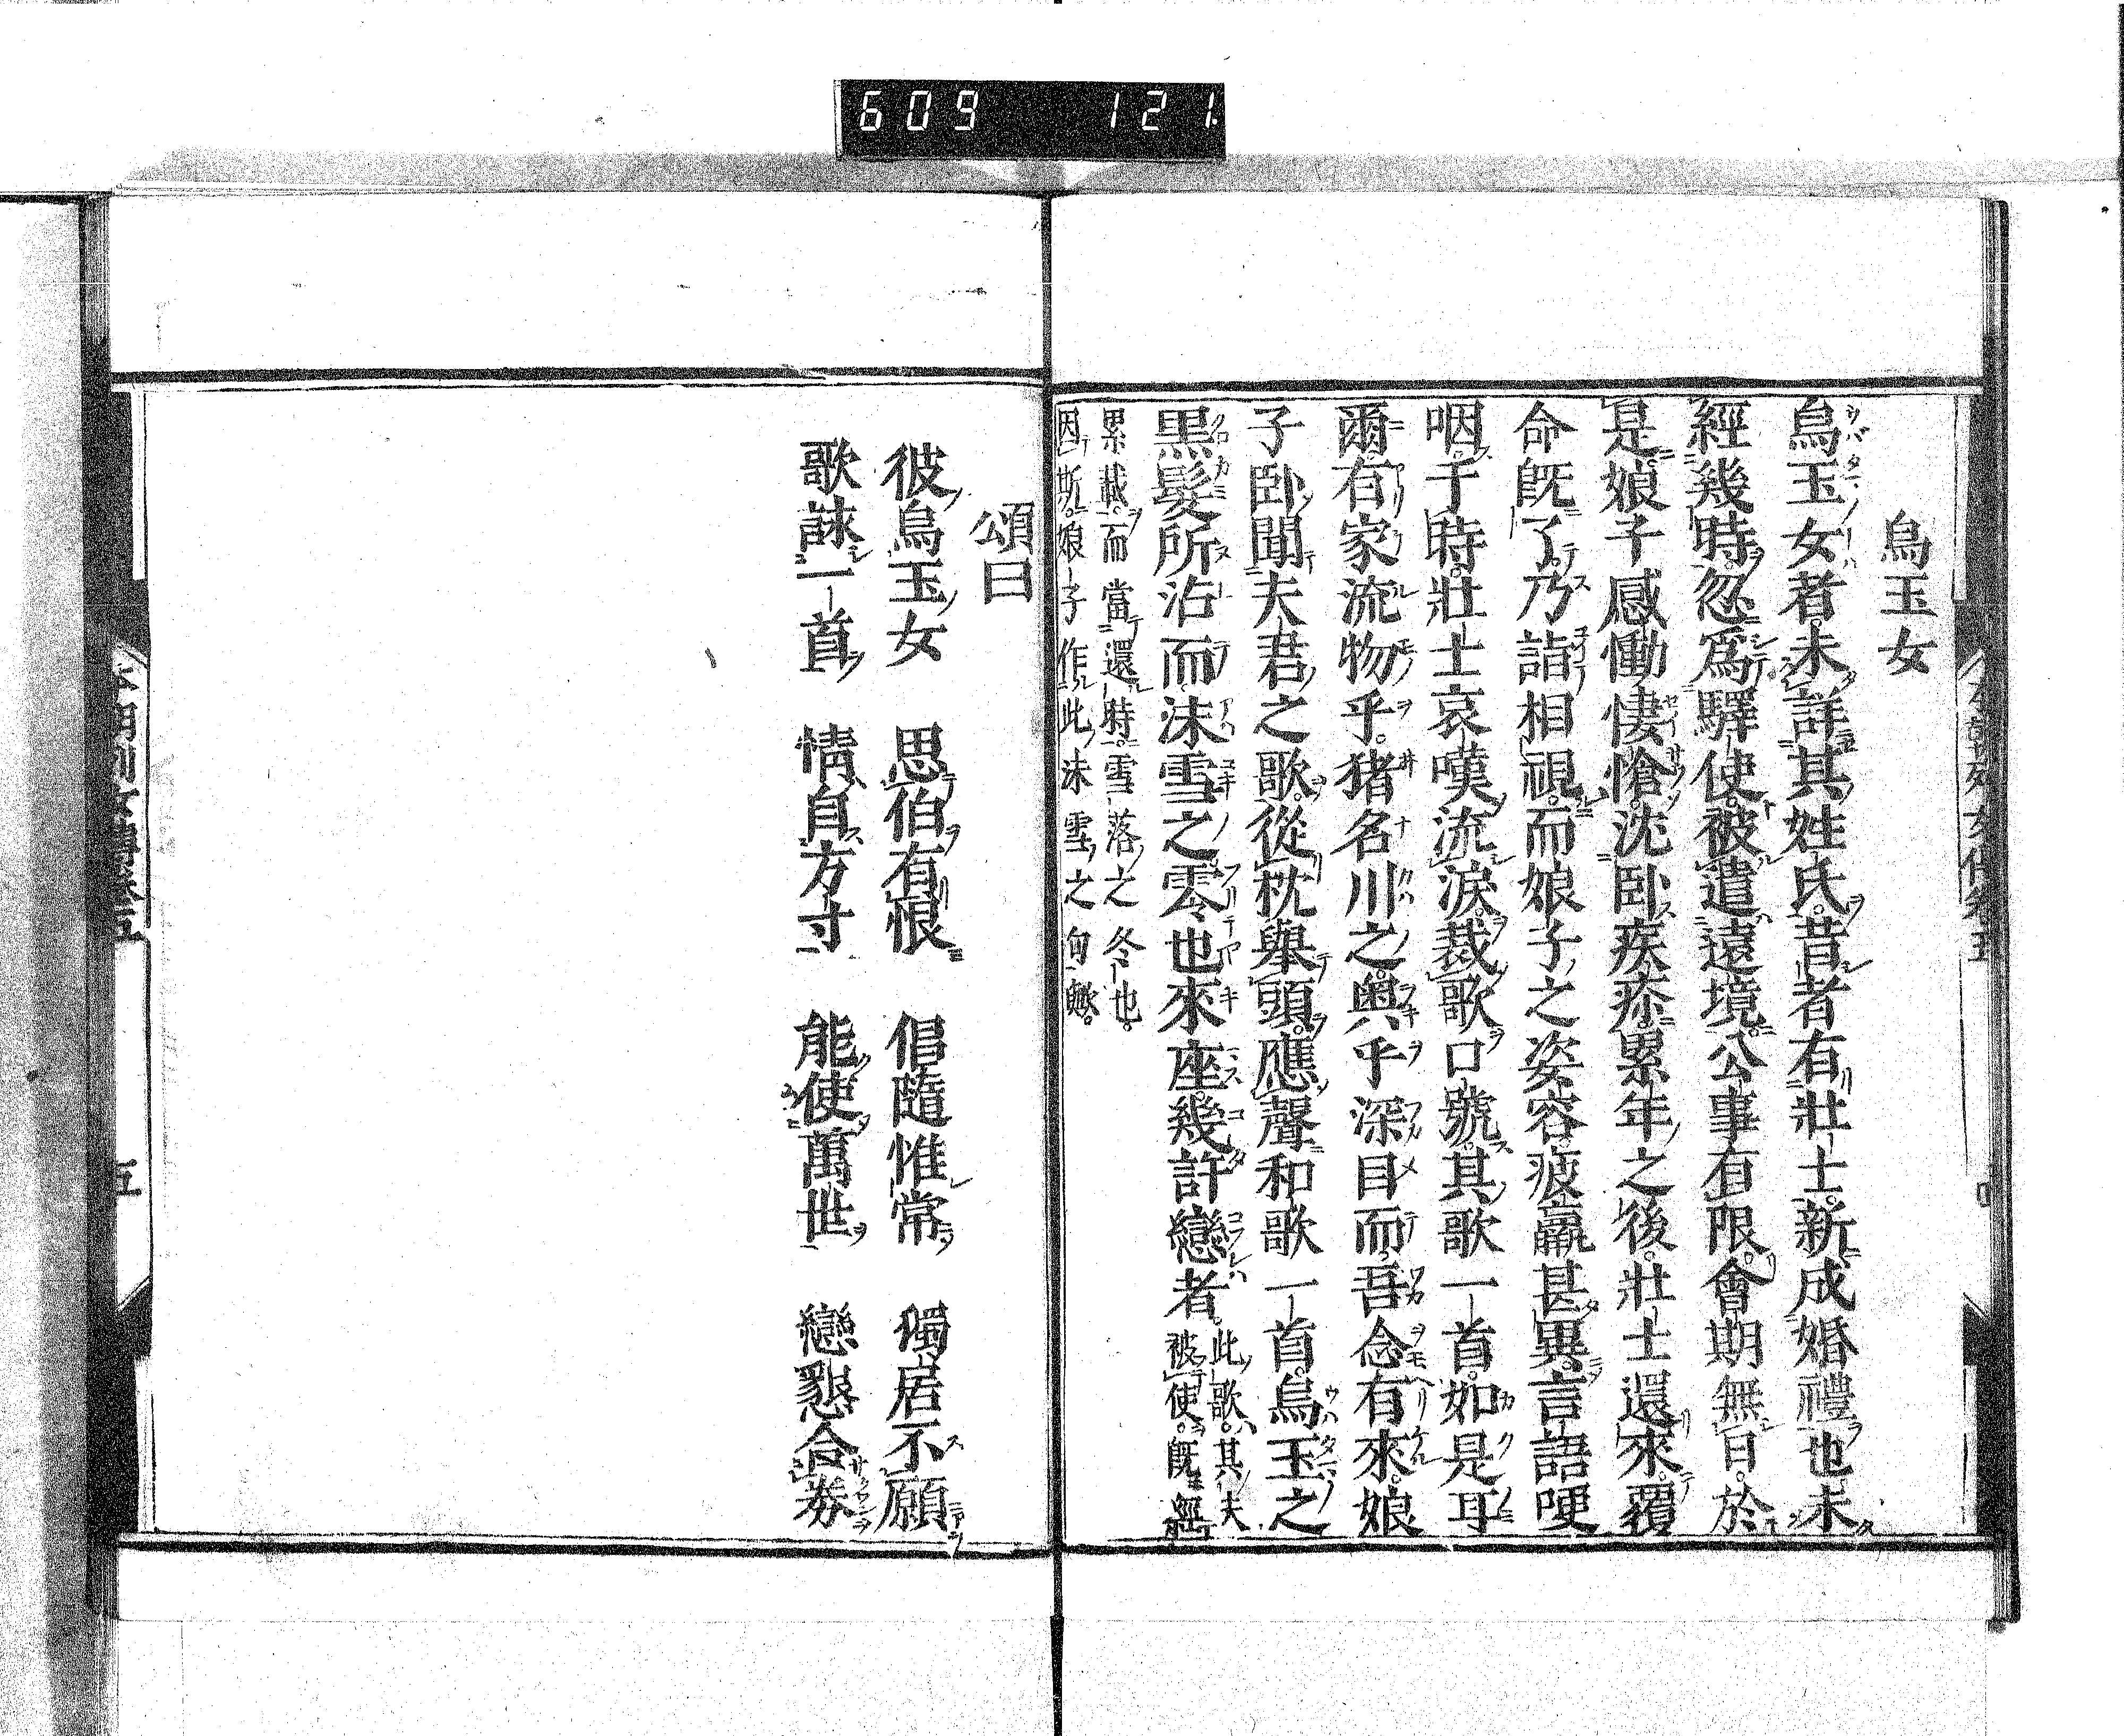 609 121
烏玉女
烏玉女者未詳其姓氏昔者有壯士新成婚禮也未
經幾時忽爲驛使被遣遠境公事有限會期無日於
是娘子感慟悽愴沈臥疾疹累年之後壯士還來覆
命既了乃詣相視而娘子之姿容疲羸甚異言語哽
咽于時壯士哀嘆流淚裁歌口號其歌一首如是耳
爾有家流物乎猪名川之奧乎深目而吾念有來娘
子臥聞夫君之歌從枕舉頭應聲和歌一首烏玉之
黑髮所沾而沫雪之零也來座幾許戀者此歌其夫
被使既經
累載而當還時雪落之冬也
因斯娘子作此沫雪之句歟
頌曰
彼烏玉女 思伯有恨 倡隨惟常 獨居不願
歌詠一首 情自方寸 能使萬世 戀懇合劵
本朝列女傳卷五
五